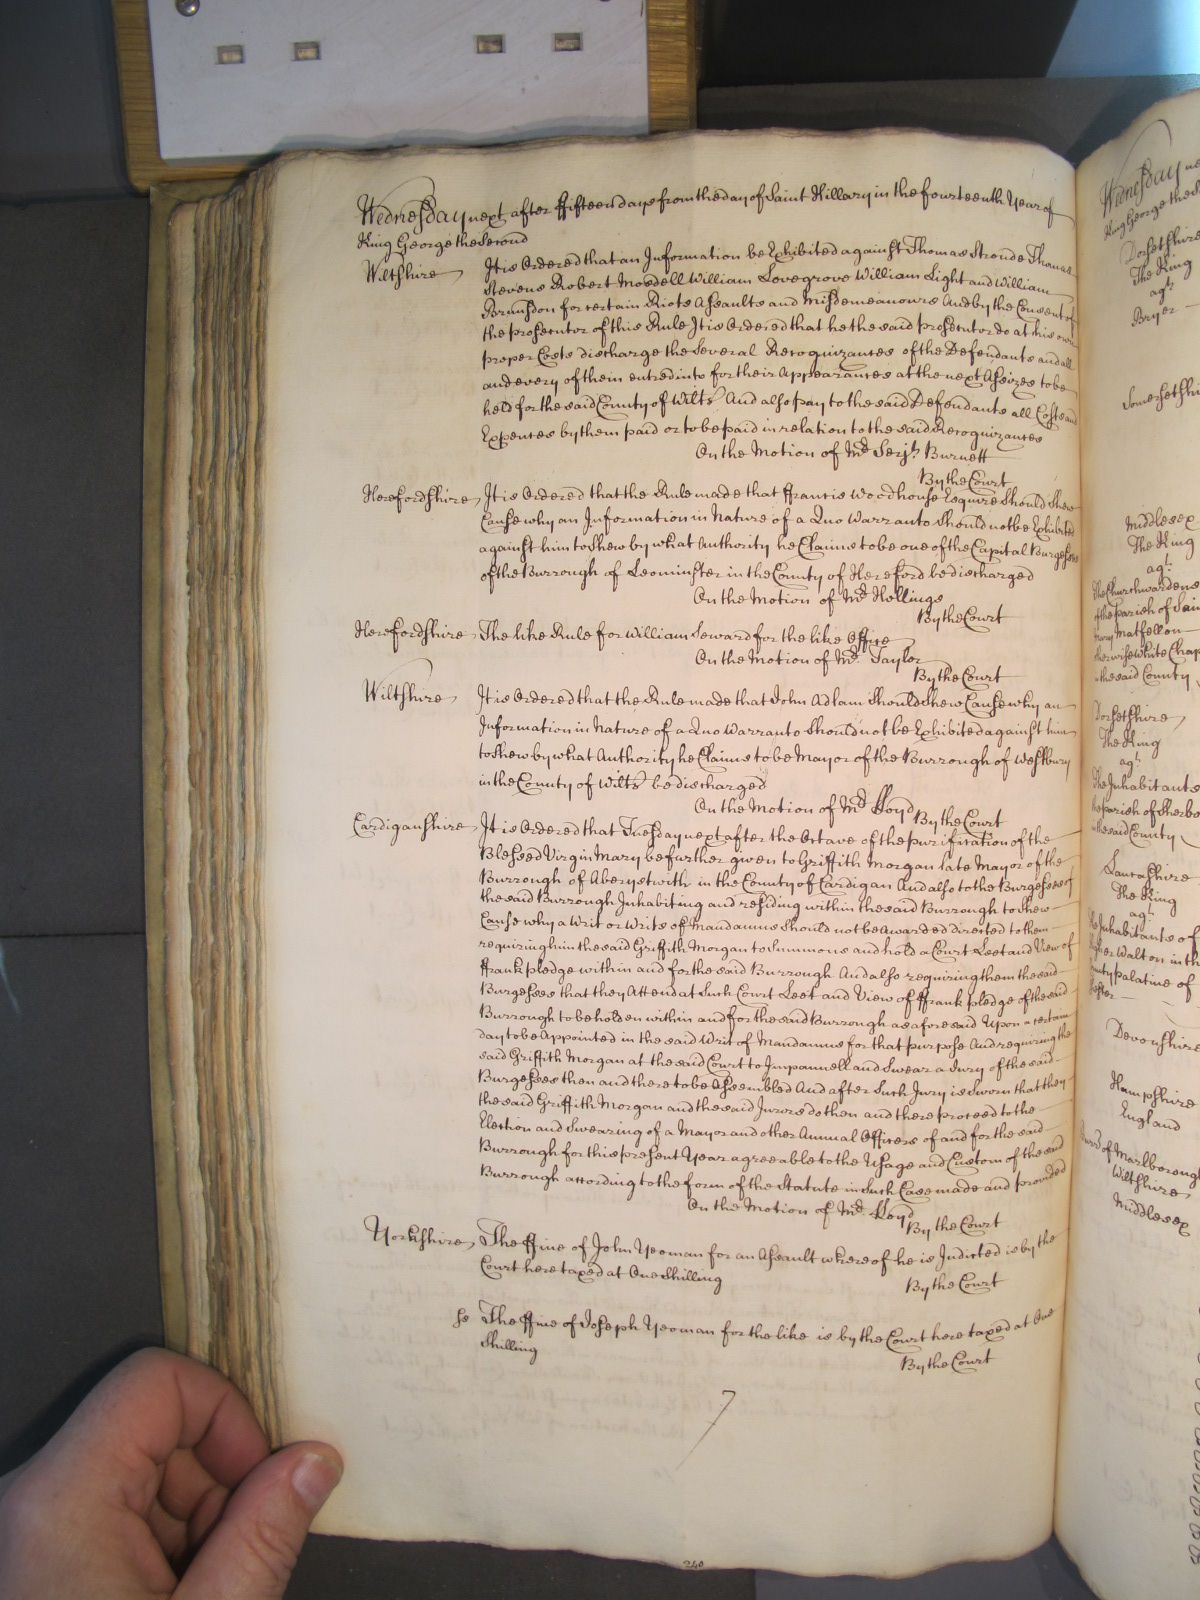 Wednesday next after ffifteen days from the day of Saint Hillary in the fourteenth Year of
King George the Second
Wiltshire It is Ordered that an Information be Exhibited against Thomas Stronde Thomas
Stevens Robert Mordell William Lovegrove William Light and William
Brunsdon for certain Riots Assaults and Misdemeanours And by the Consent of
the prosecutor of this Rule It is Ordered that he the said prosecutor do at his own
proper Costs discharge the Several Recognizances of the Defendants and all
and every of them entred into for their Appearances at the next Assizes to be
held for the said County of Wilts And also pay to the said Defendants all Costs and
Expences by them paid or to be paid in relation to the said Recognizances
On the Motion of Mr Serjt Burnett
By the Court
Herefordshire It is Ordered that the Rule made that ffrancis Woodhouse Esquire Should Shew
Cause why an Information in Nature of a Quo Warranto Should not be Exhibited
against him to Shew by what Authority he Claims to be one of the Capital Burgesses
of the Burrough of Leominster in the County of Hereford be discharged
On the Motion of Mr Hollings
By the Court
Herefordshire The like Rule for William Seward for the like Office
On the Motion of Mr Taylor
By the Court
Wiltshire It is Ordered that the Rule made that John Adlam Should Shew Cause why an
Information in Nature of a Quo Warranto Should not be Exhibited against him
to Shew by what Authority he Claims to be Mayor of the Burrough of Westbury
in the County of Wilts be discharged
On the Motion of Mr Lloyd
By the Court
Cardiganshire It is Ordered that Tuesday next after the Octave of the purification of the
Blessed Virgin Mary be further given to Griffith Morgan late Mayor of the
Burrough of Aberystwith in the County of Cardigan And also to the Burgesses of
the said Burrough Inhabiting and residing within the said Burrough to Shew
Cause why a Writ or Writs of Mandamus Should not be Awarded directed to them
requiring him the said Griffith Morgan to Summons and hold a Court Leet and View of
ffrank pledge within and for the said Burrough And also requiring them the said
Burgesses that they Attend at Such Court Leet and View of ffrank pledge of the said
Burrough to be holden within and for the said Burrough as aforesaid Upon a certain
day to be Appointed in the said Writ of Mandamus for that purpose And requiring the
said Griffith Morgan at the said Court to Impannell and Swear a Jury of the said
Burgesses then and there to be Assembled And after Such Jury is Sworn that they
the said Griffith Morgan and the said Jurors do then and there proceed to the
Election and Swearing of a Mayor and other Annual Officers of and for the said
Burrough for this present Year agreeable to the Usage and Custom of the said
Burrough according to the form of the Statute in Such Case made and provided
On the Motion of Mr Lloyd
By the Court
Yorkshire The ffine of John Yeoman for an Assault whereof he is Indicted is by the
Court here taxed at One Shilling
By the Court
The ffine of Joseph Yeoman for the like is by the Court here taxed at One
Shilling
By the Court
240
Wednesday
King George the
Dorsetshire
The King
agt
Bryer
Somersetshi
Middlesex
The King
agt
the Churchwardens
of the parish of Sain
Mary Matfellon
otherwise White Chap
in the said County
Dorsetshire
The King
agt
The Inhabitants
the parish of Sherbo
in the said County
Lancashire
The King
agt
Inhabitants of
Walton in th
County palatine of
Devonshire
Hampshire
England
of Marlborough
Wiltshire
Middlesex